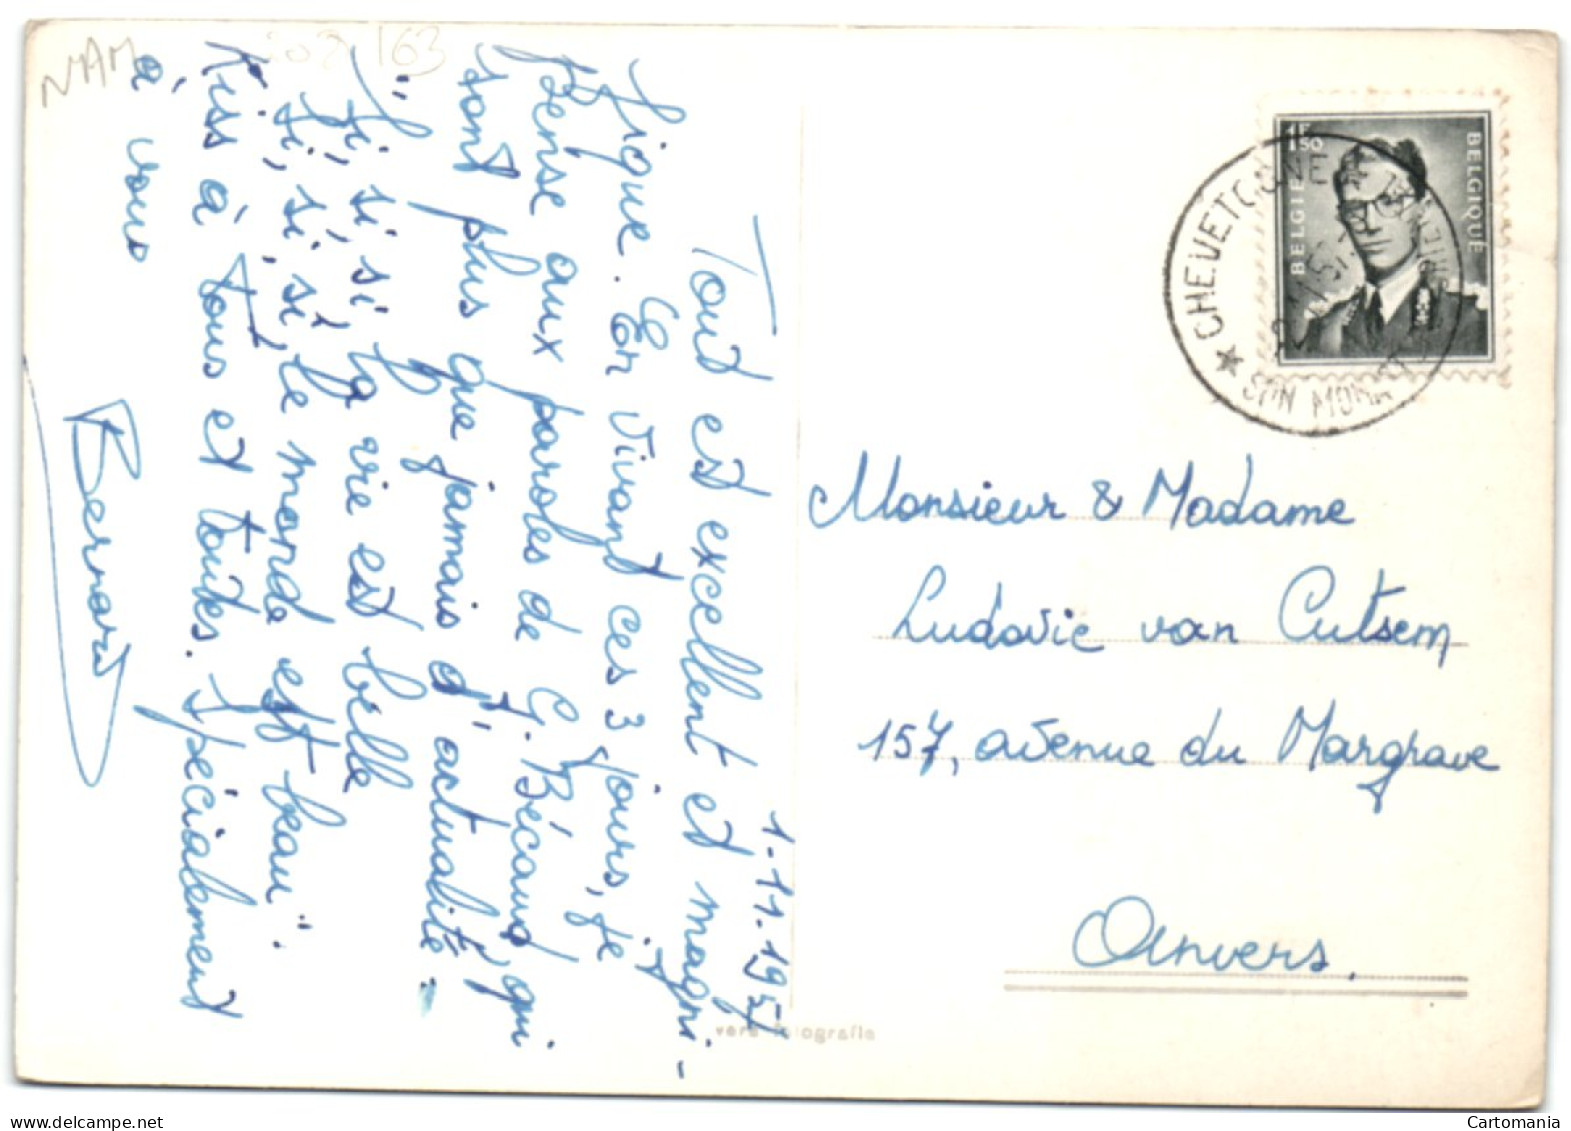 NAM
163
1.11.1957
Tout est excellent et magni-
fique. En vivant ces 3 jours, je
pense aux paroles de G. Bécaud, qui
sont plus que jamais d'actualité :
"
Si, si, si, la vie est belle
Si, si, si, le monde est beau".
Kiss à tous et toutes. Spécialement
à vous
Bernard
BELGIE BELGIQUE
1F50
★ CHEVETOGNE ★
SON MON
Monsieur & Madame
Ludovic van Cutsem
157, avenue du Margrave
Anvers.
vera fotografia
Cartomania